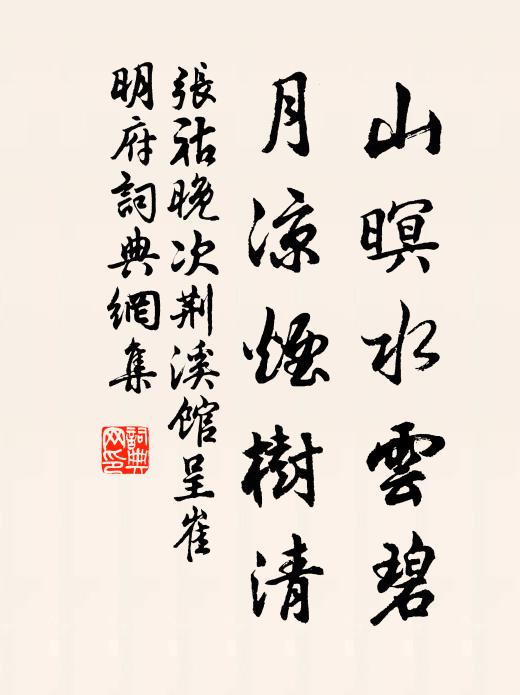 山暝水雲碧
月涼煙樹清
張祜晚次荆溪館呈崔
明府詞典網集
詞典网印